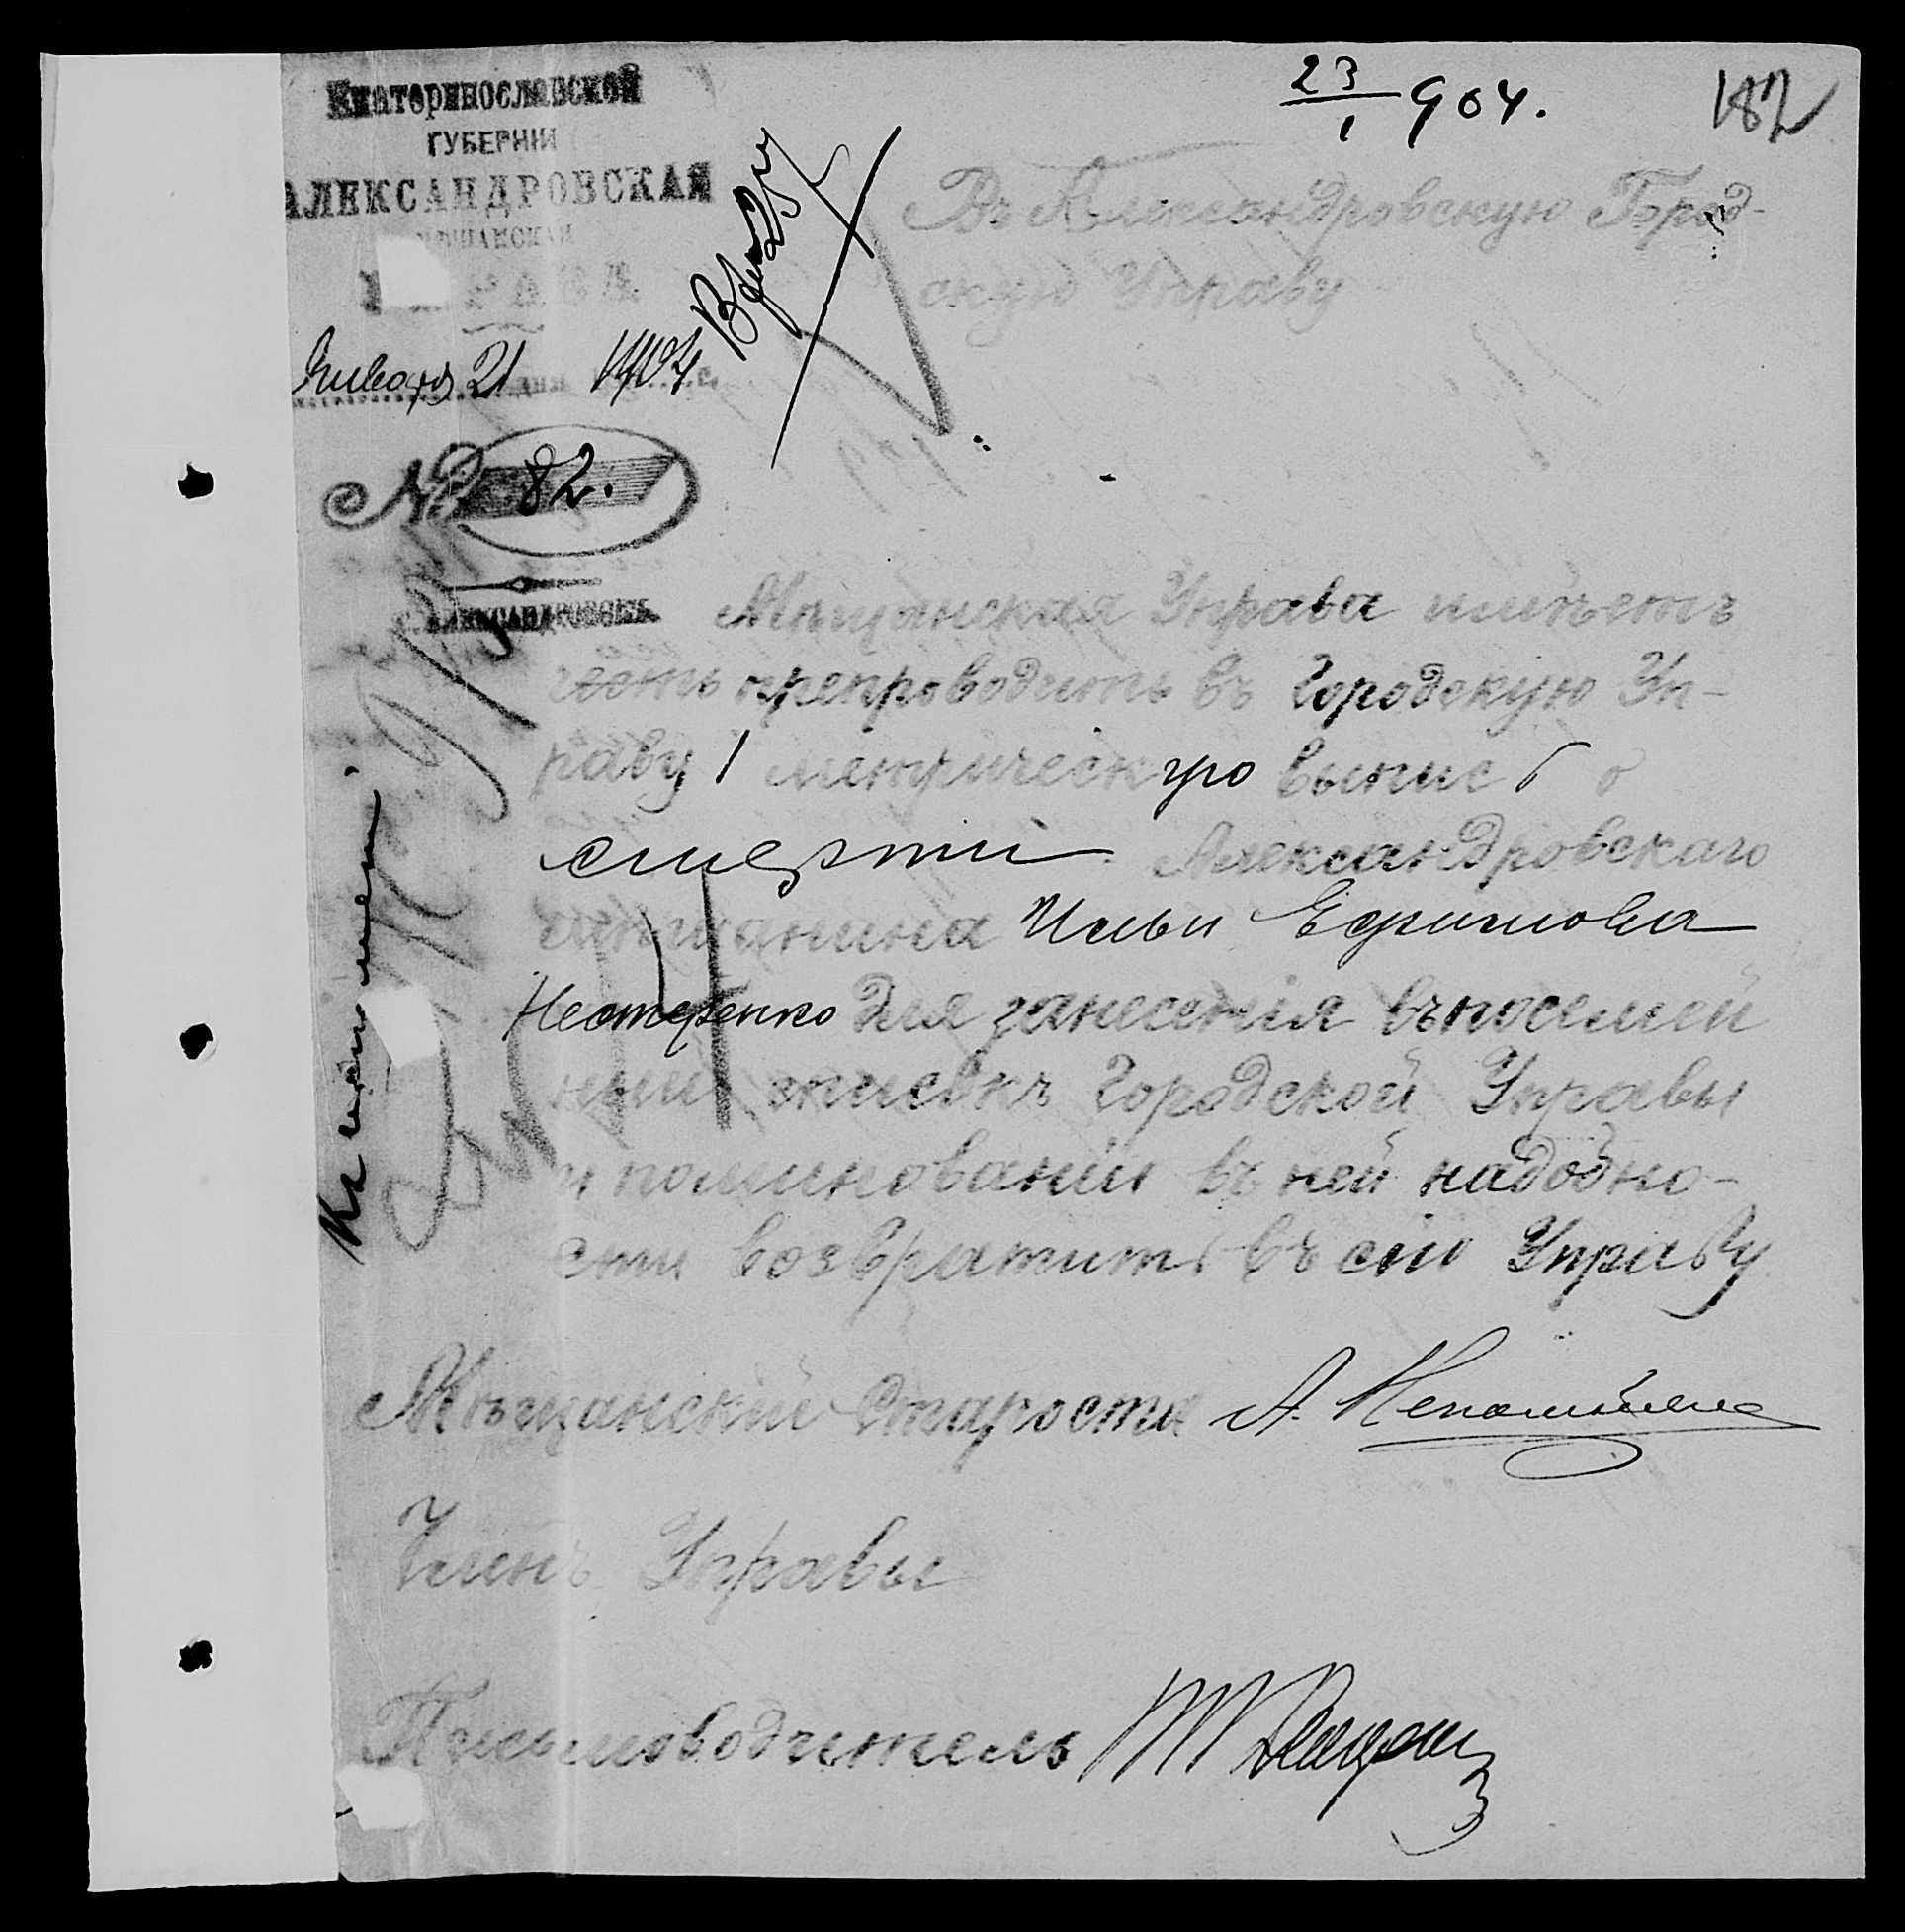 23/1 904.
182
Екатеринославской
ГУБЕРНІИ
АЛЕКСАНДРОВСКАЯ
МѢЩАНСКАЯ
УПРАВА
Января 21 дня 1904 г.
№ 82.
г. АЛЕКСАНДРОВСКЪ
Въ Александровскую Город-
скую Управу
Мѣщанская Управа имѣетъ
честь препроводить въ Городскую Уп-
раву 1 метрическую выпись о
смерти Александровскаго
мѣщанина Ильи Ефимова
Нестеренко для занесенія въ посемей
ный списокъ Городской Управы
и по минованіи въ ней надобно-
сти возвратить въ сію Управу
Мѣщанскій Староста А.
Членъ Управы
Письмоводитель